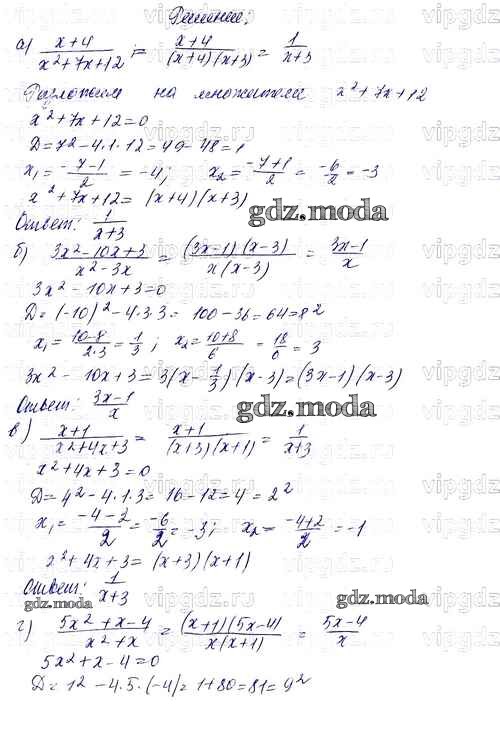 Решение:
а) x+4/x²+7x+12 = x+4/(x+4)(x+3) = 1/x+3
Разложим на множители x²+7x+12
x²+7x+12=0
D=7²-4.1.12=49-48=1
x₁=-7-1/2=-4; x₂=-7+1/2=-6/2=-3
x²+7x+12=(x+4)(x+3)
Ответ: 1/x+3
gdz.moda
б) 3x²-10x+3/x²-3x=(3x-1)(x-3)/x(x-3)=3x-1/x
3x²-10x+3=0
D=(-10)²-4.3.3=100-36=64=8²
x₁=10-8/2.3=1/3; x₂=10+8/6=18/6=3
3x²-10x+3=3(x-1/3)(x-3)=(3x-1)(x-3)
Ответ: 3x-1/x
gdz.moda
в) x+1/x²+4x+3=x+1/(x+3)(x+1)=1/x+3
x²+4x+3=0
D=4²-4.1.3=16-12=4=2²
x₁=-4-2/2=-6/2=-3; x₂=-4+2/2=-1
x²+4x+3=(x+3)(x+1)
Ответ: 1/x+3
gdz.moda gdz.moda
г) 5x²+x-4/x²+x=(x+1)(5x-4)/x(x+1)=5x-4/x
5x²+x-4=0
D=1²-4.5.(-4)=1+80=81=9²